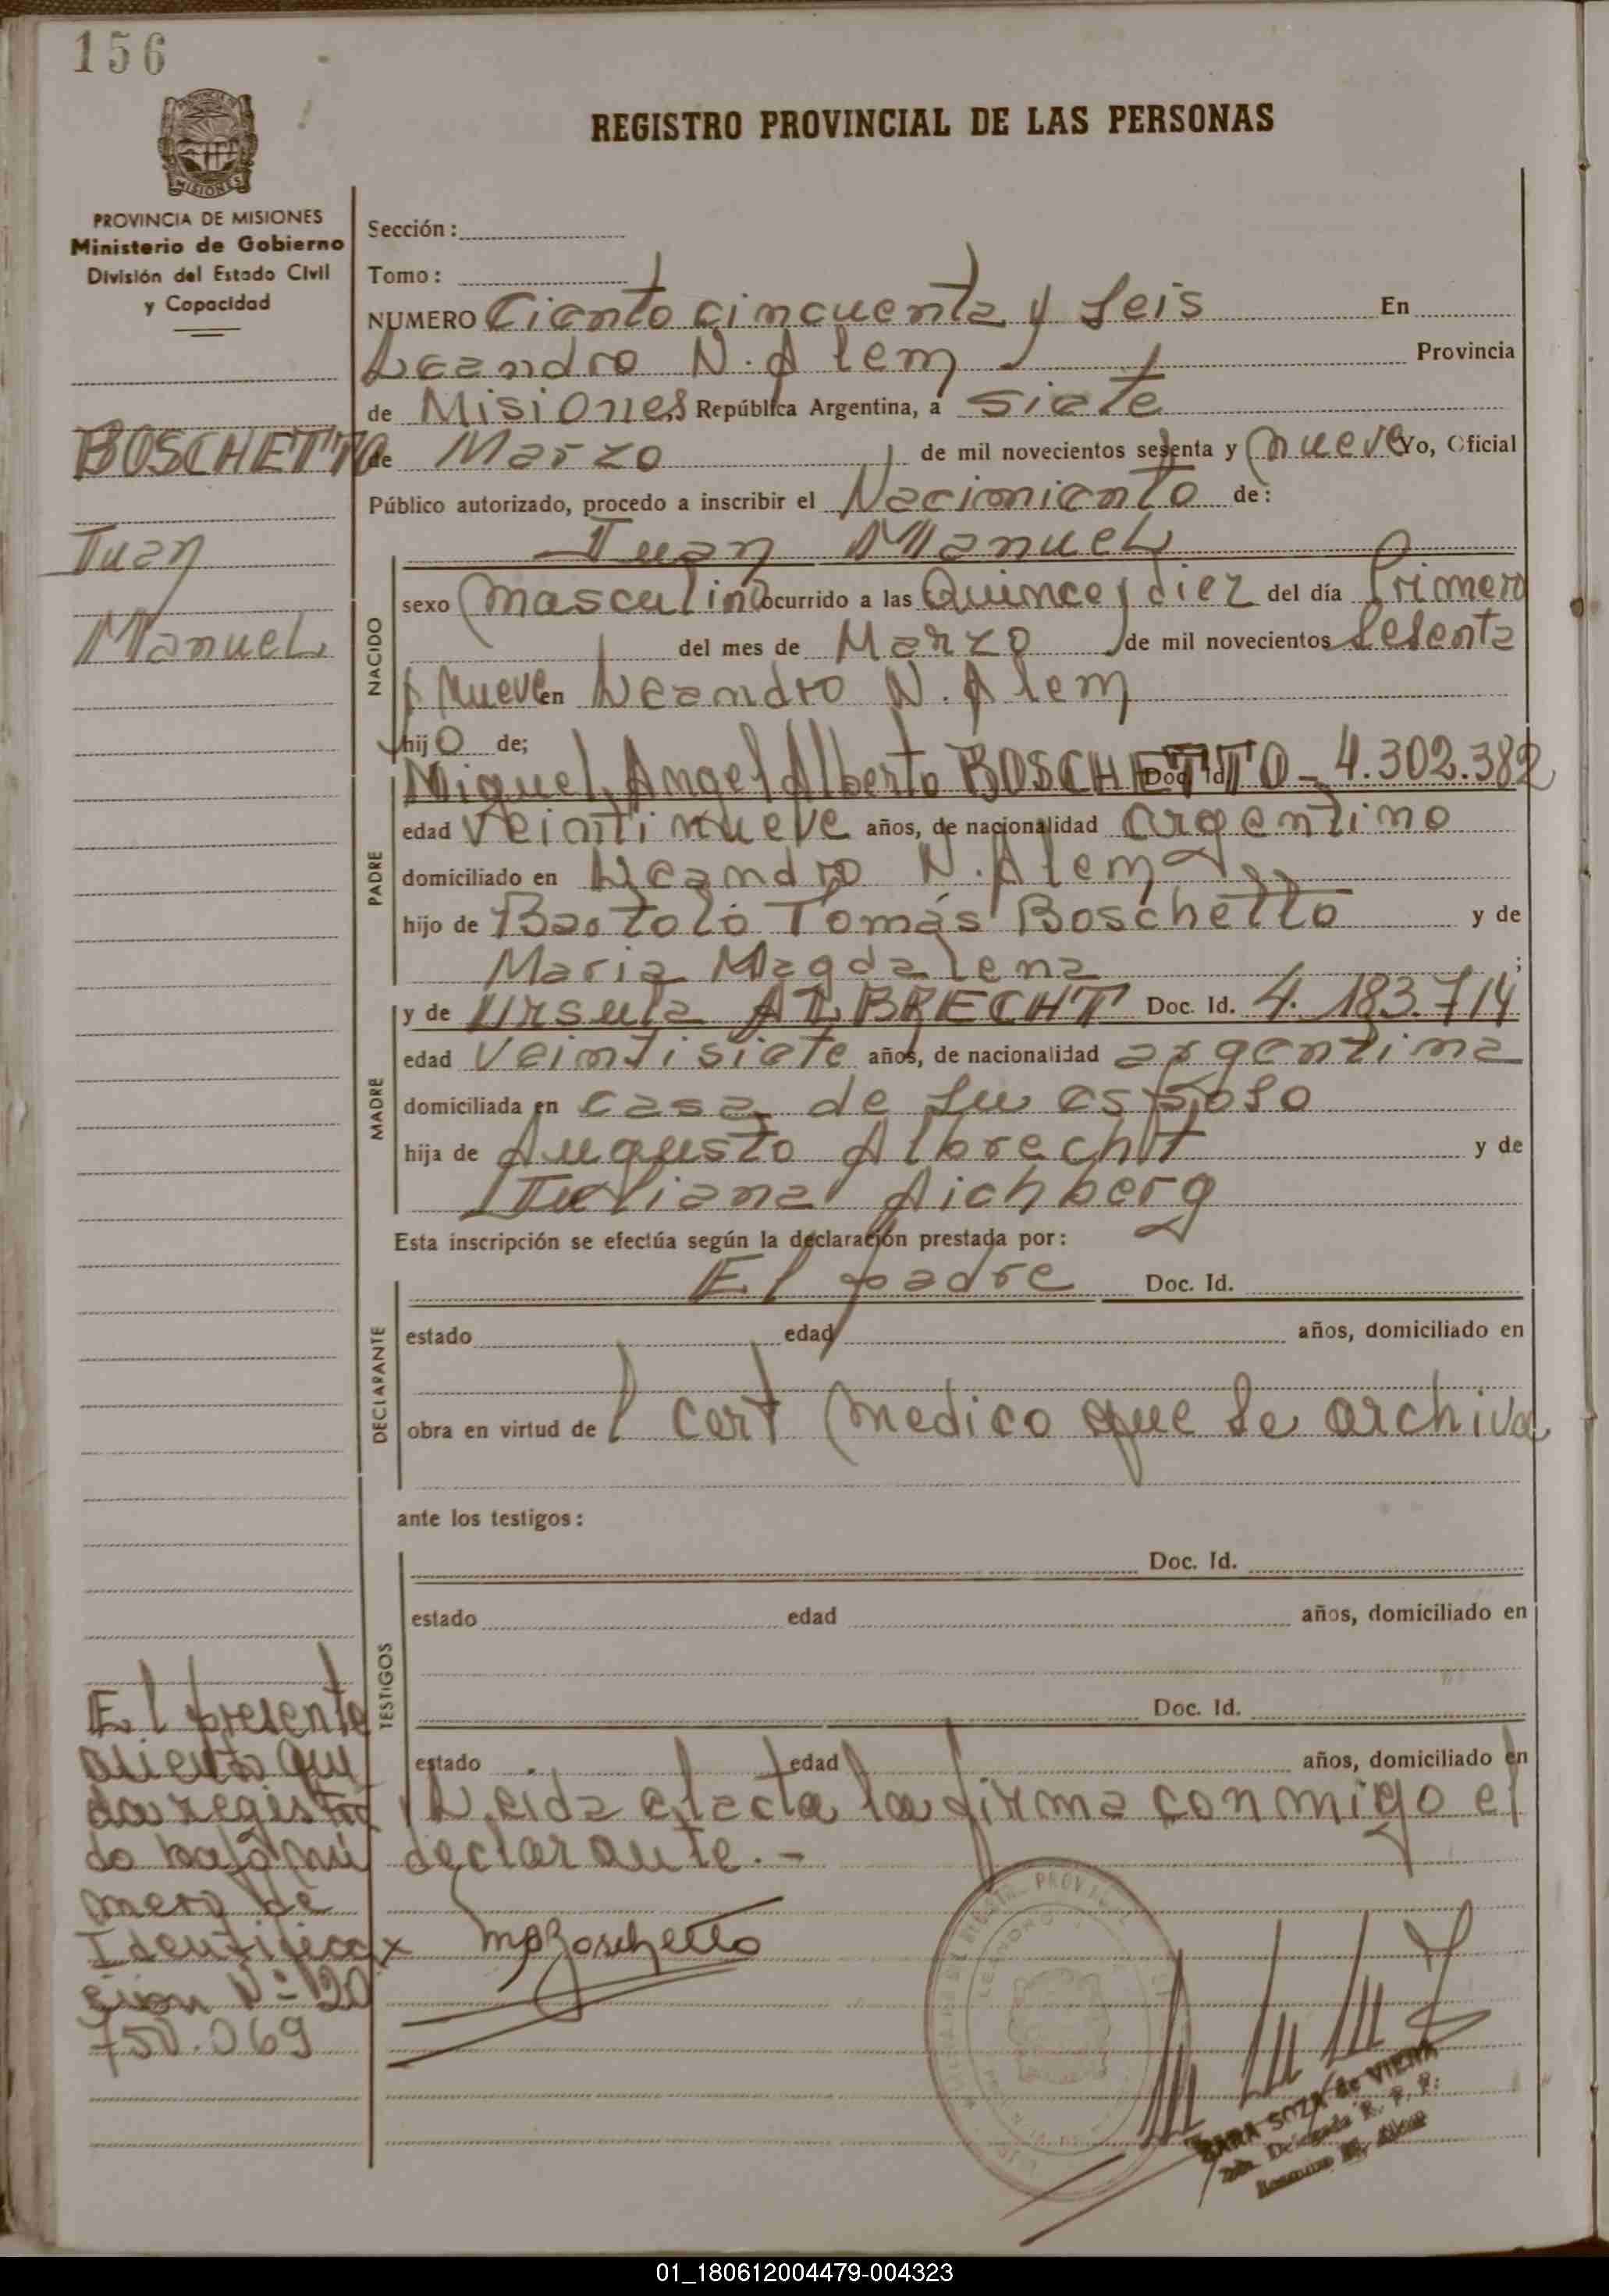 156
REGISTRO PROVINCIAL DE LAS PERSONAS
MISIONES
PROVINCIA DE MISIONES
Ministerio de Gobierno
División del Estado Civil
y Capacidad
BOSCHETTO
Juan
Manuel
Sección:
Tomo:
NUMERO Ciento cincuenta y Seis En
Leandro N. Alem Provincia
de Misiones República Argentina, a siete
de Marzo de mil novecientos sesenta y nueve Yo, Oficial
Público autorizado, procedo a inscribir el Nacimiento de:
Juan Manuel
NACIDO
sexo masculino ocurrido a las Quince y diez del día Primero
del mes de Marzo de mil novecientos Sesenta
y Nueve en Leandro N. Alem
hijo de;
PADRE
Miguel Angel Alberto BOSCHETTO - Doc. Id. 4.302.382
edad Veintinueve años, de nacionalidad argentino
domiciliado en Leandro N. Alem
hijo de Bartolo Tomás Boschetto y de
Maria Magdalena ;
MADRE
y de Ursula ALBRECHT Doc. Id. 4.183.714
edad Veintisiete años, de nacionalidad argentina
domiciliada en casa de su esposo
hija de Augusto Albrecht y de
Juliana Aichberg
Esta inscripción se efectúa según la declaración prestada por:
DECLARANTE
El padre Doc. Id.
estado edad años, domiciliado en
obra en virtud del cert medico que se archiva
ante los testigos:
TESTIGOS
Doc. Id.
estado edad años, domiciliado en
Doc. Id.
estado edad años, domiciliado en
Leida el acta la firma conmigo el
declarante.-
El presente
asiento que
da registra
do bajo nú
mero de
Identifica
cion Nº 20
750.069
MABoschetto
SARA SOZA de VIERA
Delegada R. P. P.
Leandro N. Alem
01_180612004479-004323